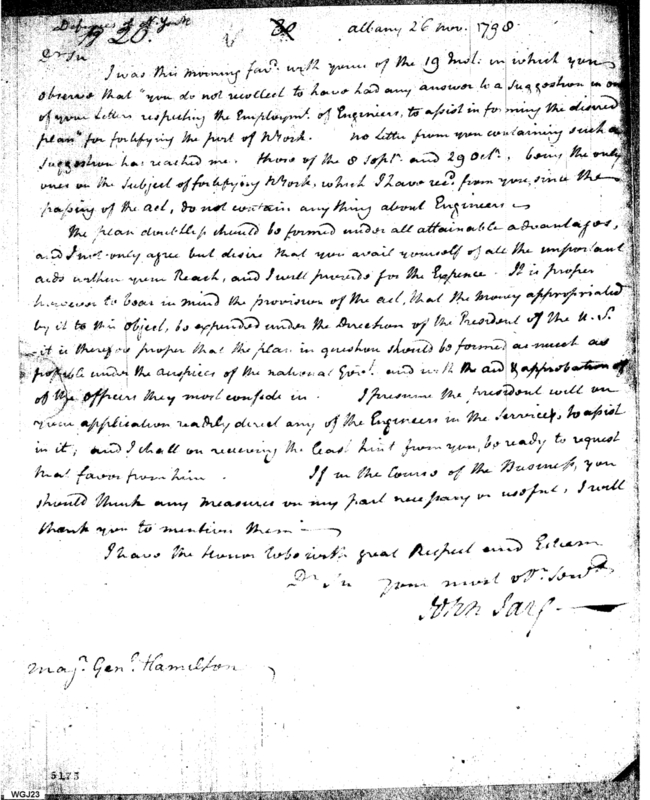 Defences of N. York
No 20.
Albany 26 Nov. 1798
Dr Sir
I was this morning favd. with yours of the 19 Inst: in which you
observe that "you do not recollect to have had any answer to a Suggestion in one
of your Letters respecting the Employmt. of Engineers, to assist in forming the desired
plan" for fortifying the port of NYork. no Letter from you containing such a
Suggestion has reached me. those of the 8 Sept. and 29 Octr., being the only
ones on the Subject of fortifying NYork, which I have recd. from you, since the
passing of the act, do not contain any thing about Engineers—
The plan doubtless should be formed under all attainable advantages,
and I not only agree but desire that you avail yourself of all the important
aids within your Reach, and I will provide for the Expence. It is proper
however to bear in mind the provision of the act, that the money appropriated
by it to this object, be expended under the Direction of the President of the U. S.
—it is therefore proper that the plan in question should be formed as much as
possible under the auspices of the national Govt. and with the aid & approbation of
of the officers they most confide in. I presume the President will on
your application readily direct any of the Engineers in the Service, to assist
in it; and I shall on receiving the least hint from you, be ready to request
that favor from him. If in the Course of the Business, you
should think any measures on my part necessary or useful, I will
thank you to mention them—
I have the Honor to be with great Respect and Esteem
Dr Sir your most obt. Servt.
John Jay
Majr. Genl. Hamilton
5173
WGJ23